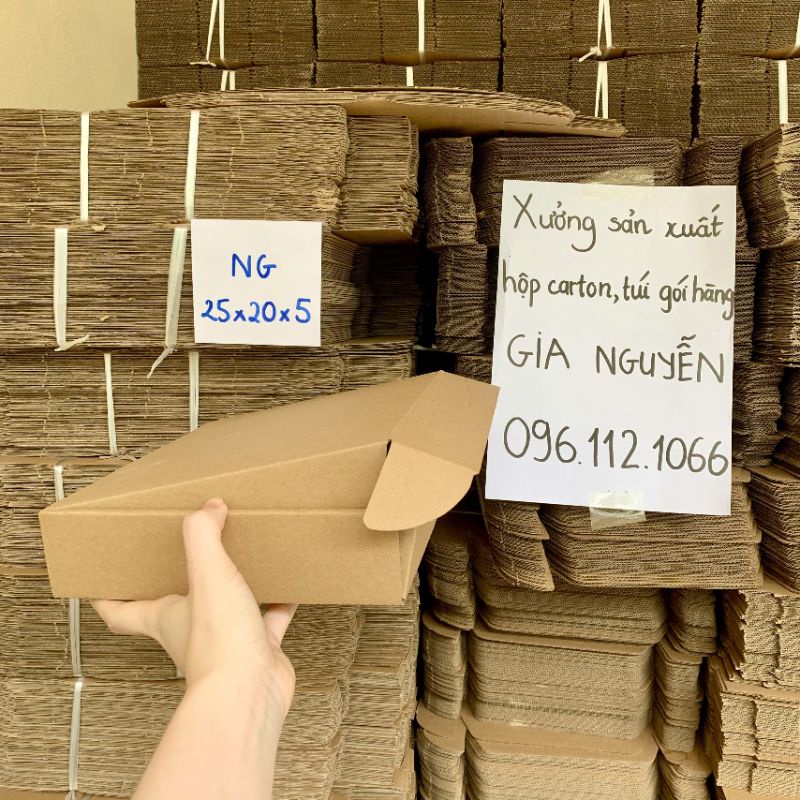 NG
25x20x5
Xưởng sản xuất
hộp carton, túi gói hàng
GIA NGUYỄN
096.112.1066